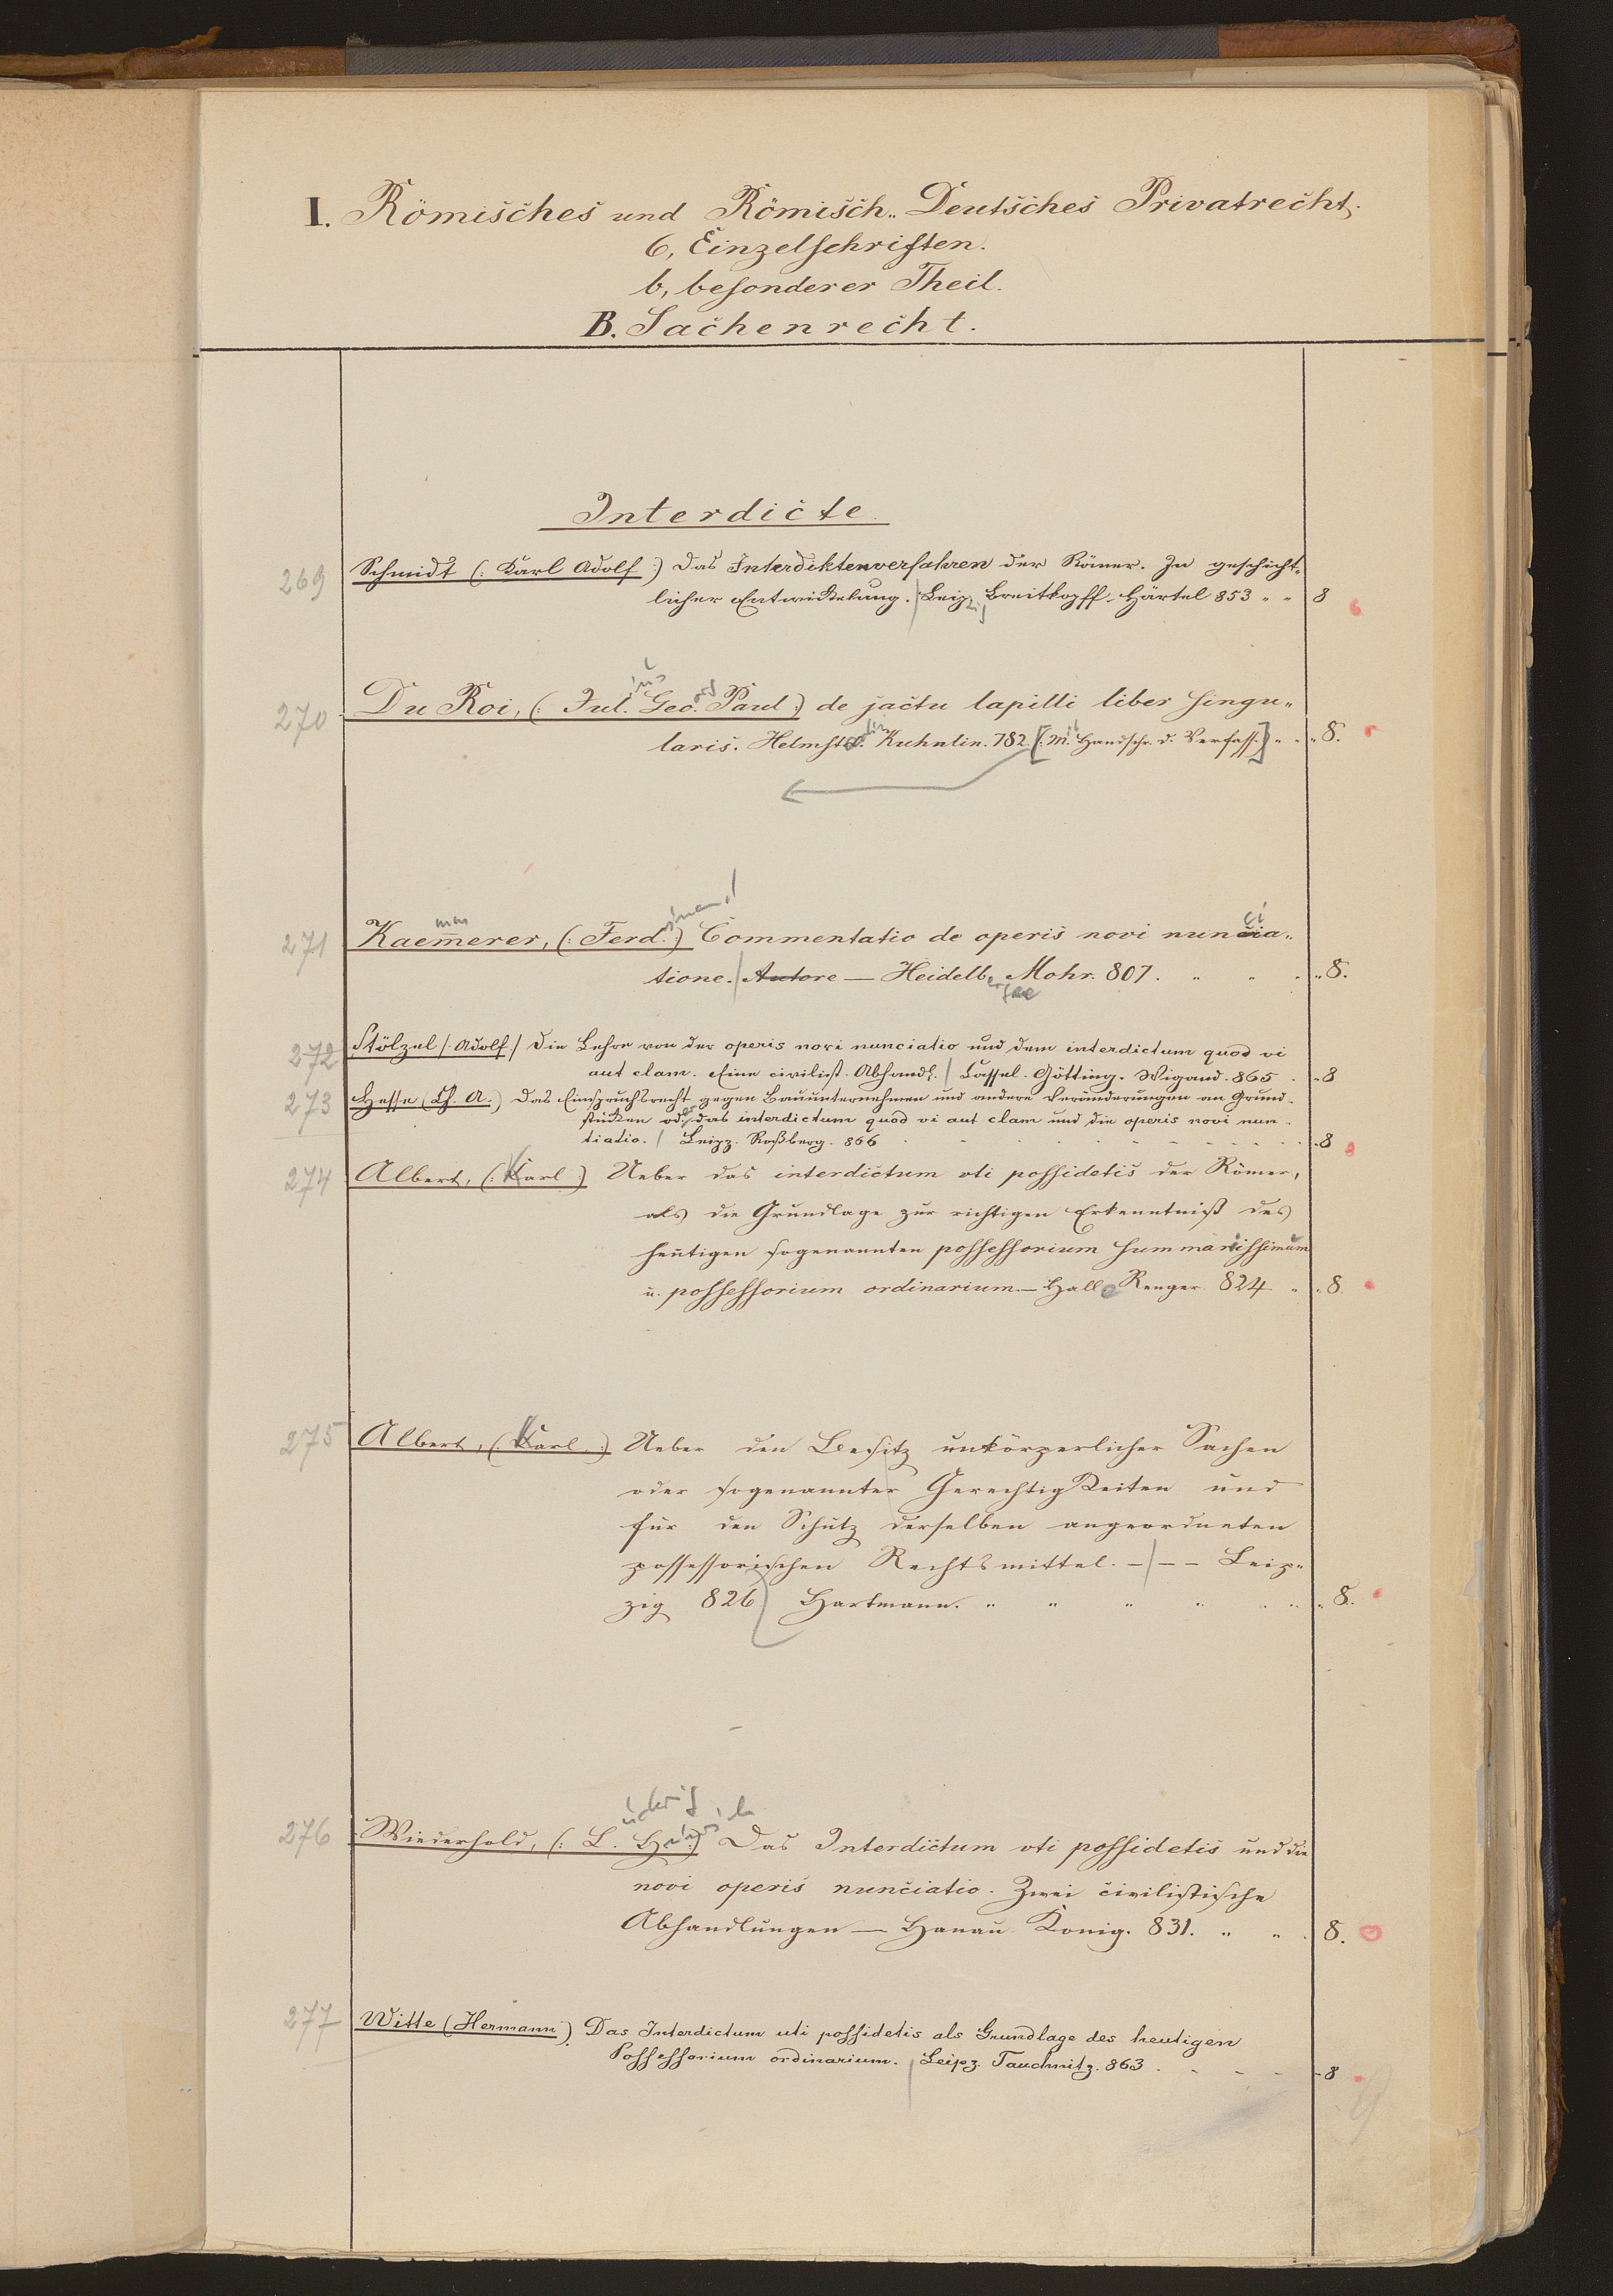 I. Römisches und Römisch-Deutsches Privatrecht.
6, Einzelschriften.
b, besonderer Theil.
B. Sachenrecht.
Interdicte.
269 Schmidt (: Karl Adolf :) Das Interdiktenverfahren der Römer. In geschicht-
licher Entwickelung. Leipzig Breitkopff-Härtel 853 " " 8
270 Du Roi, (: Jul. Geo. Paul :) de jactu lapilli liber singu-
laris. Helmst. Kuhnlin. 782. [: M. Handschr. d. Verfass. :] " " 8.
271 Kaem̅erer, (: Ferd. :) Commentatio de operis novi nuncia-
tione. Autore — Heidelb. Mohr. 807. " " " 8.
272 Stölzel (: Adolf :) Die Lehre von der operis novi nunciatio und dem interdictum quod vi
aut clam. Eine civilist. Abhandl. Cassel. Götting. Wigand. 865 - 8
273 Hesse (Ch. A.) Das Einspruchsrecht gegen Bauunternehmen und andere Veränderungen an Grund-
stücken oder das interdictum quod vi aut clam und die operis novi nun-
tiatio. Leipz. Roßberg. 866 - 8
274 Albert, (: Karl :) Ueber das interdictum uti possidetis der Römer,
als die Grundlage zur richtigen Erkenntniß des
heutigen sogenannten possessorium summariissimum
u. possessorium ordinarium. — Halle Renger. 824 " " 8.
275 Albert, (: Karl :) Ueber den Besitz unkörperlicher Sachen
oder sogenannter Gerechtigkeiten und
für den Schutz derselben angeordneten
possessorischen Rechtsmittel. — — Leip-
zig 826 Hartmann. " " " " " 8.
276 Wiederhold, (: L. H. :) Das Interdictum uti possidetis und die
novi operis nunciatio. Zwei civilistische
Abhandlungen — Hanau König. 831. " " 8.
277 Witte (Hermann). Das Interdictum uti possidetis als Grundlage des heutigen
Possessorium ordinarium. Leipz. Tauchnitz. 863 - - - 8